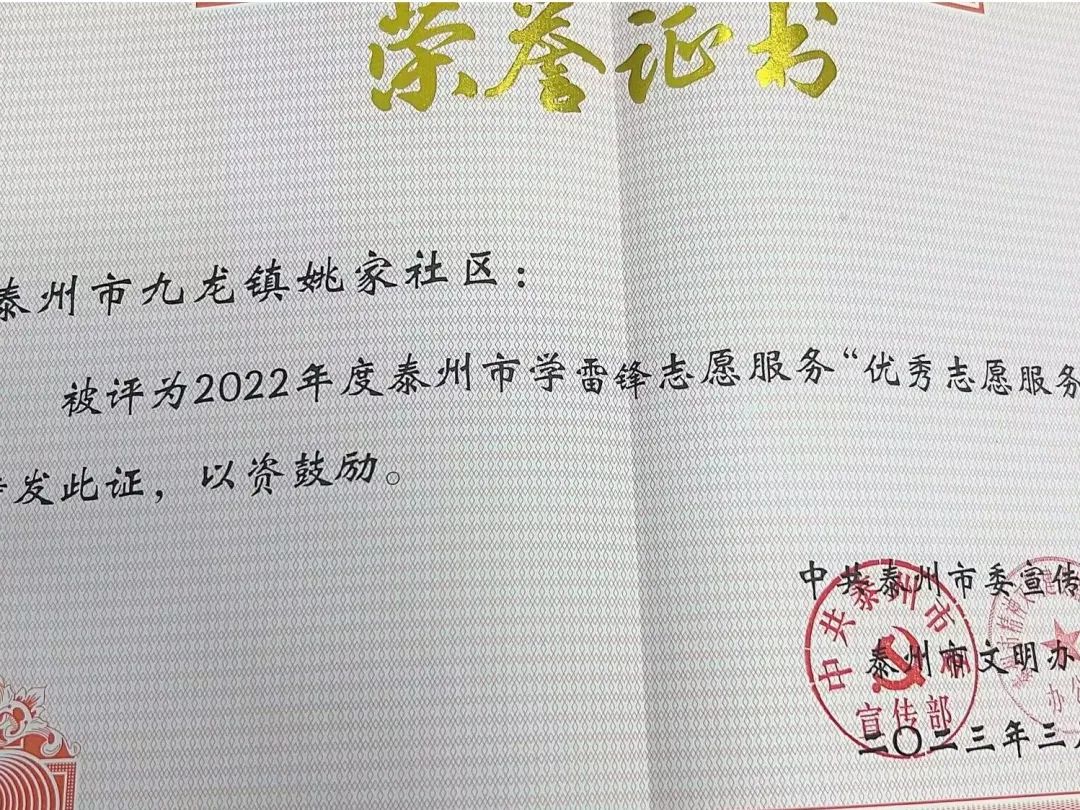 荣誉证书
泰州市九龙镇姚家社区：
被评为2022年度泰州市学雷锋志愿服务“优秀志愿服务
发此证，以资鼓励。
中共泰州市委宣传
泰州市文明办
二〇二三年三月
中共泰州市委
宣传部
办公